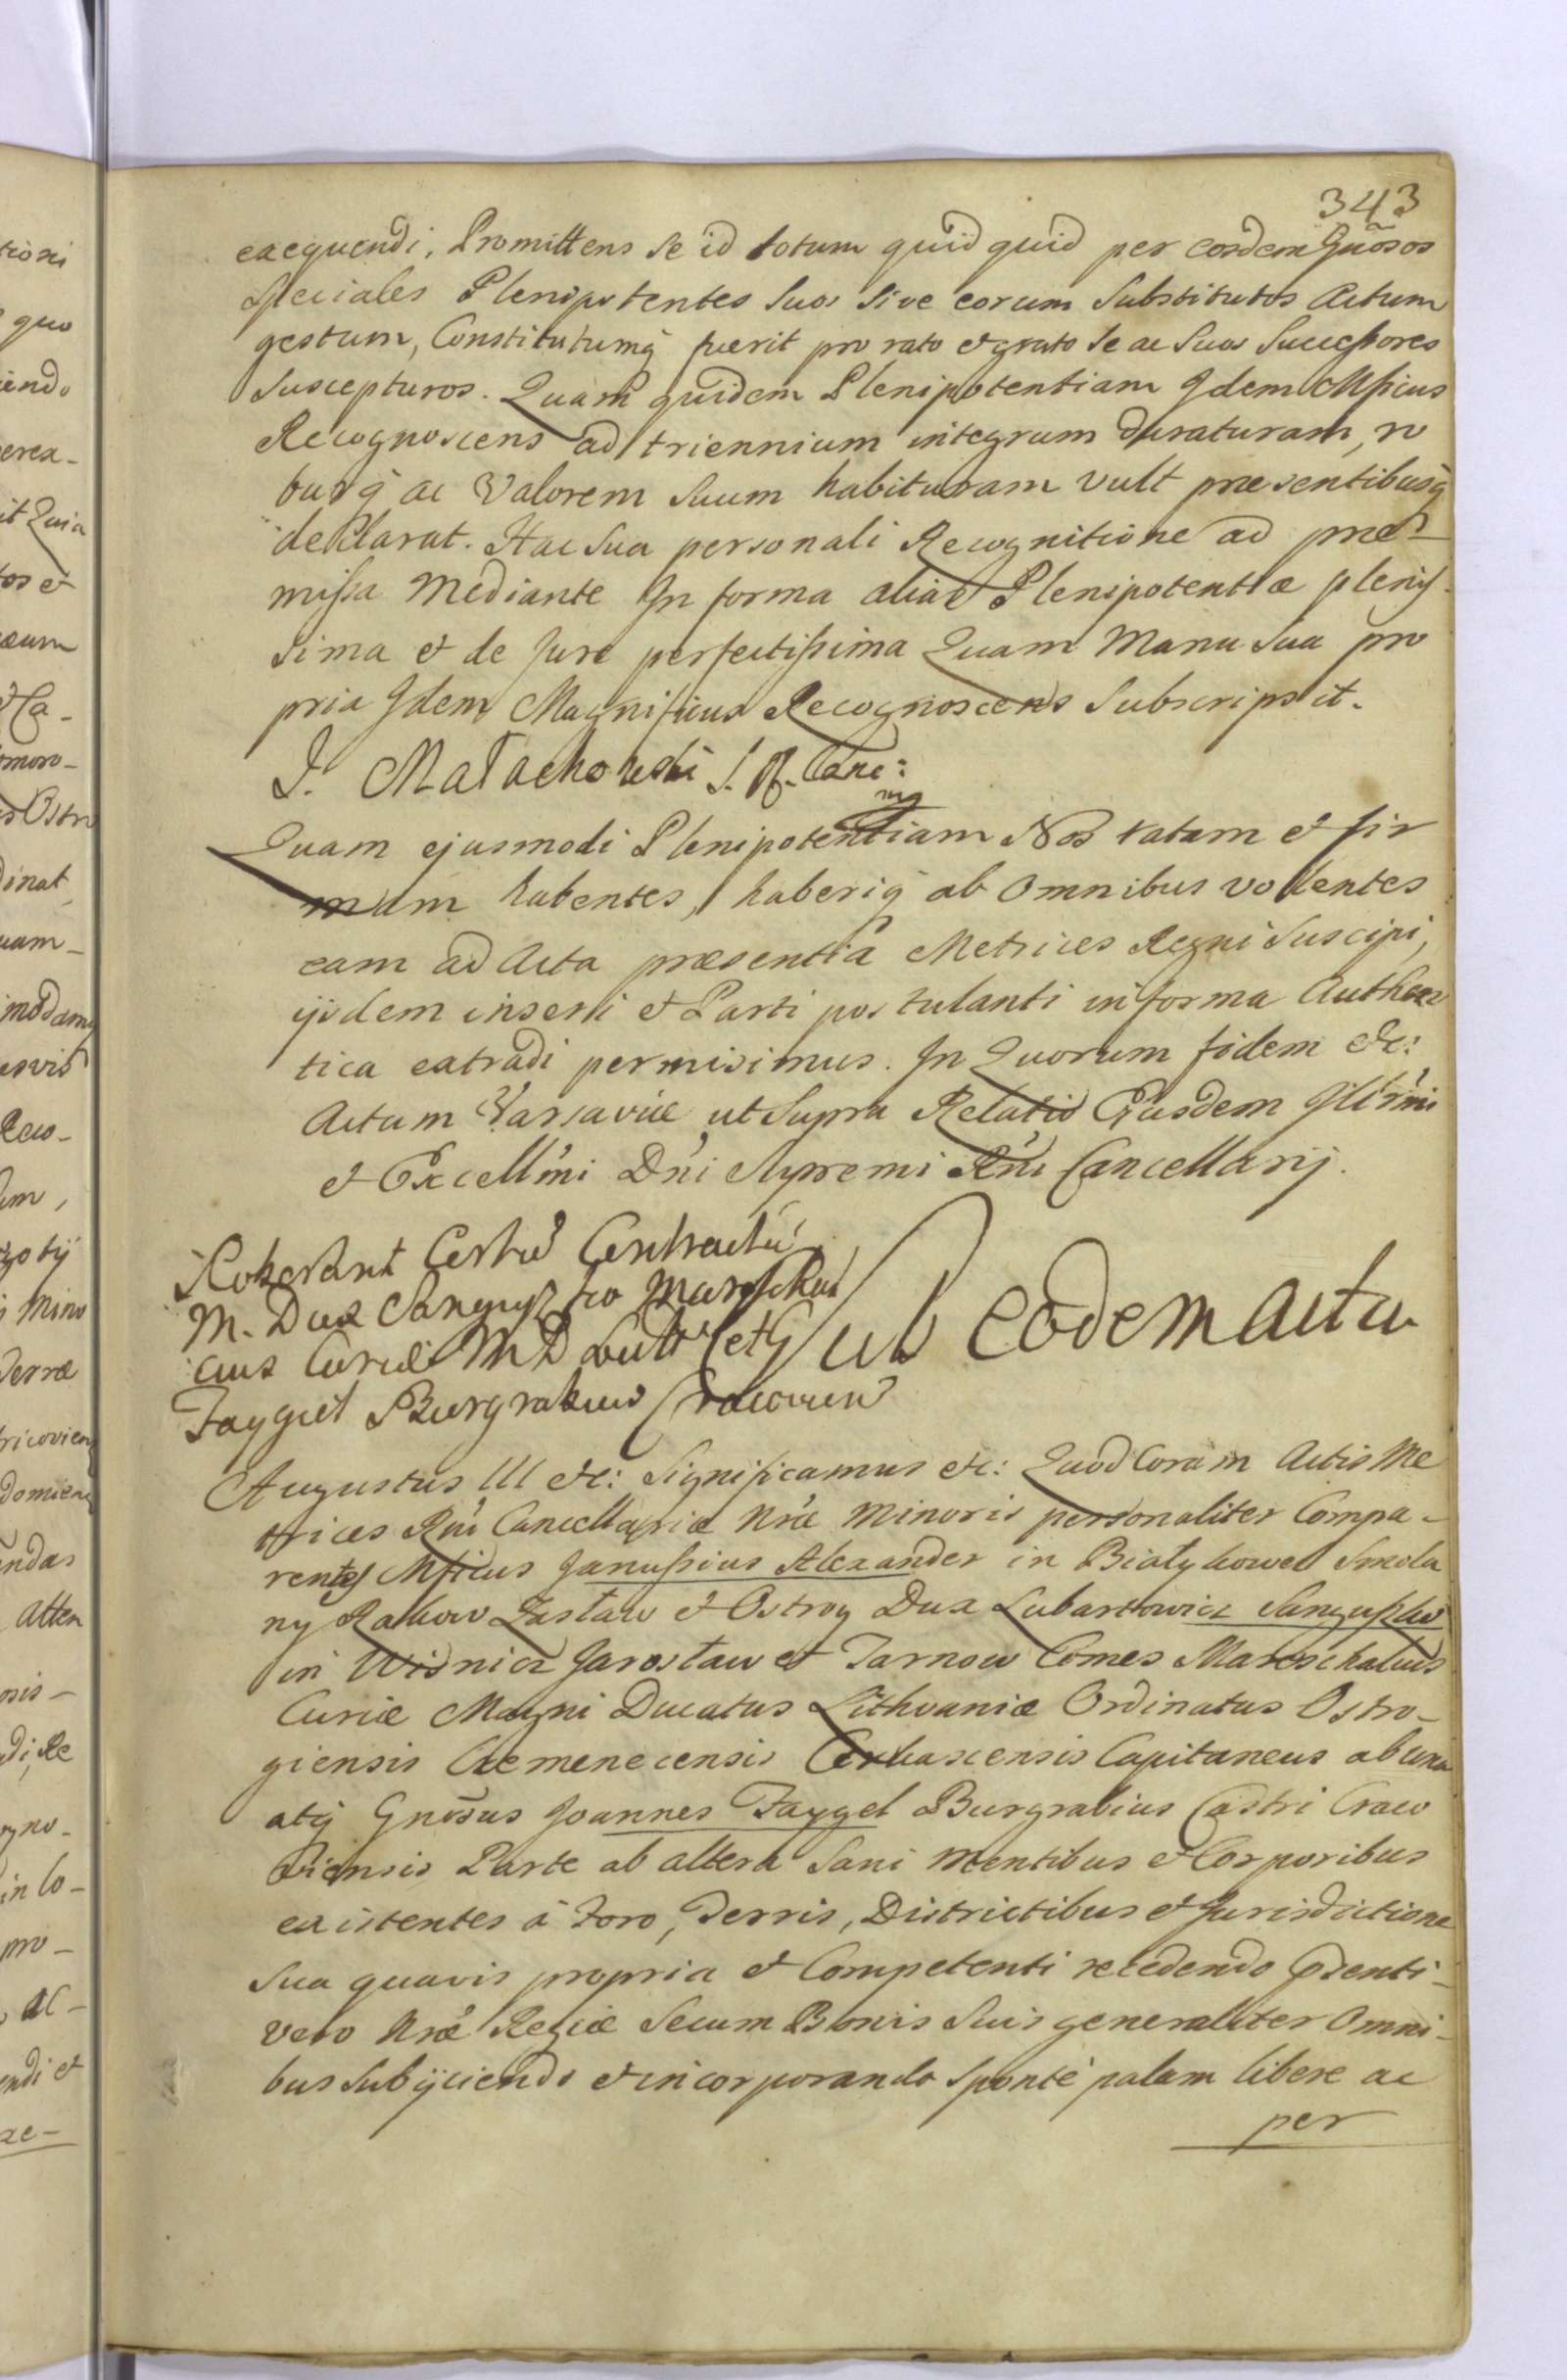 343
exequendi. Promittens se id totum quidquid per eosdem Gnosos
Speciales Plenipotentes Suos Sive eorum Substitutos Actum
gestum, Constitutumq fuerit pro rato et grato Se ac Suos Successores
Suscepturos. Quam quidem Plenipotentiam Idem Mficus
Recognoscens ad triennium integrum duraturam, ro
burq ac Valorem Suum habituram vult præsentibusq
deClarat. Hac Sua personali Recognitione ad præ
missa Mediante In forma aliæ Plenipotentiæ plenis
sima et de Jure perfectissima Quam Manu Sua pro
pria Idem Magnificus Recognoscens Subscripsit.
J. Małachowski S. R. Canc:
mp
Quam ejusmodi Plenipotentiam Nos ratam et fir
mam habentes, haberiq ab Omnibus volentes
eam ad Acta præsentia Metrices Regni Suscipi,
ijsdem inseri et Parti postulanti in forma Authen
tica extradi permisimus. In Quorum fidem etc:
Actum Varsaviæ ut Supra Relatio Ejusdem Illr'mi
et Excell'mi D'ni Supremi R'ni Cancellarij.
Roborant Certu Contractu
M. Dux Sanguszko Marschal
cus Curiæ M D Litt et G
Faygiel Burgrabius Cracovien
Sub eodem actu
Augustus III etc: Significamus etc: Quod Coram Actis Me
trices R'ni Cancellariæ N'ræ Minoris personaliter Compa-
rentes Mficus Janussius Alexander in Białykowel Smola
ny Rakow Zasław et Ostrog Dux Lubartowicz Sanguszko
in Wisnicz Jarosław et Tarnow Comes Mareschalcus
Curiæ Magni Ducatus Lithvaniæ Ordinatus Ostro-
giensis Cremenecensis Cerkascensis Capitaneus ab una
atq Gnosus Joannes Faygel Burgrabius Castri Craco
viensis Parte ab altera Sani Mentibus et Corporibus
existentes à Foro, Terris, Districtibus et Jurisdictione
Sua quavis propria et Competenti recedendo Prdenti-
vero Nræ Regiæ Secum Bonis Suis generaliter Omni-
bus Subijciendo et incorporando Sponte palam libere ac
per